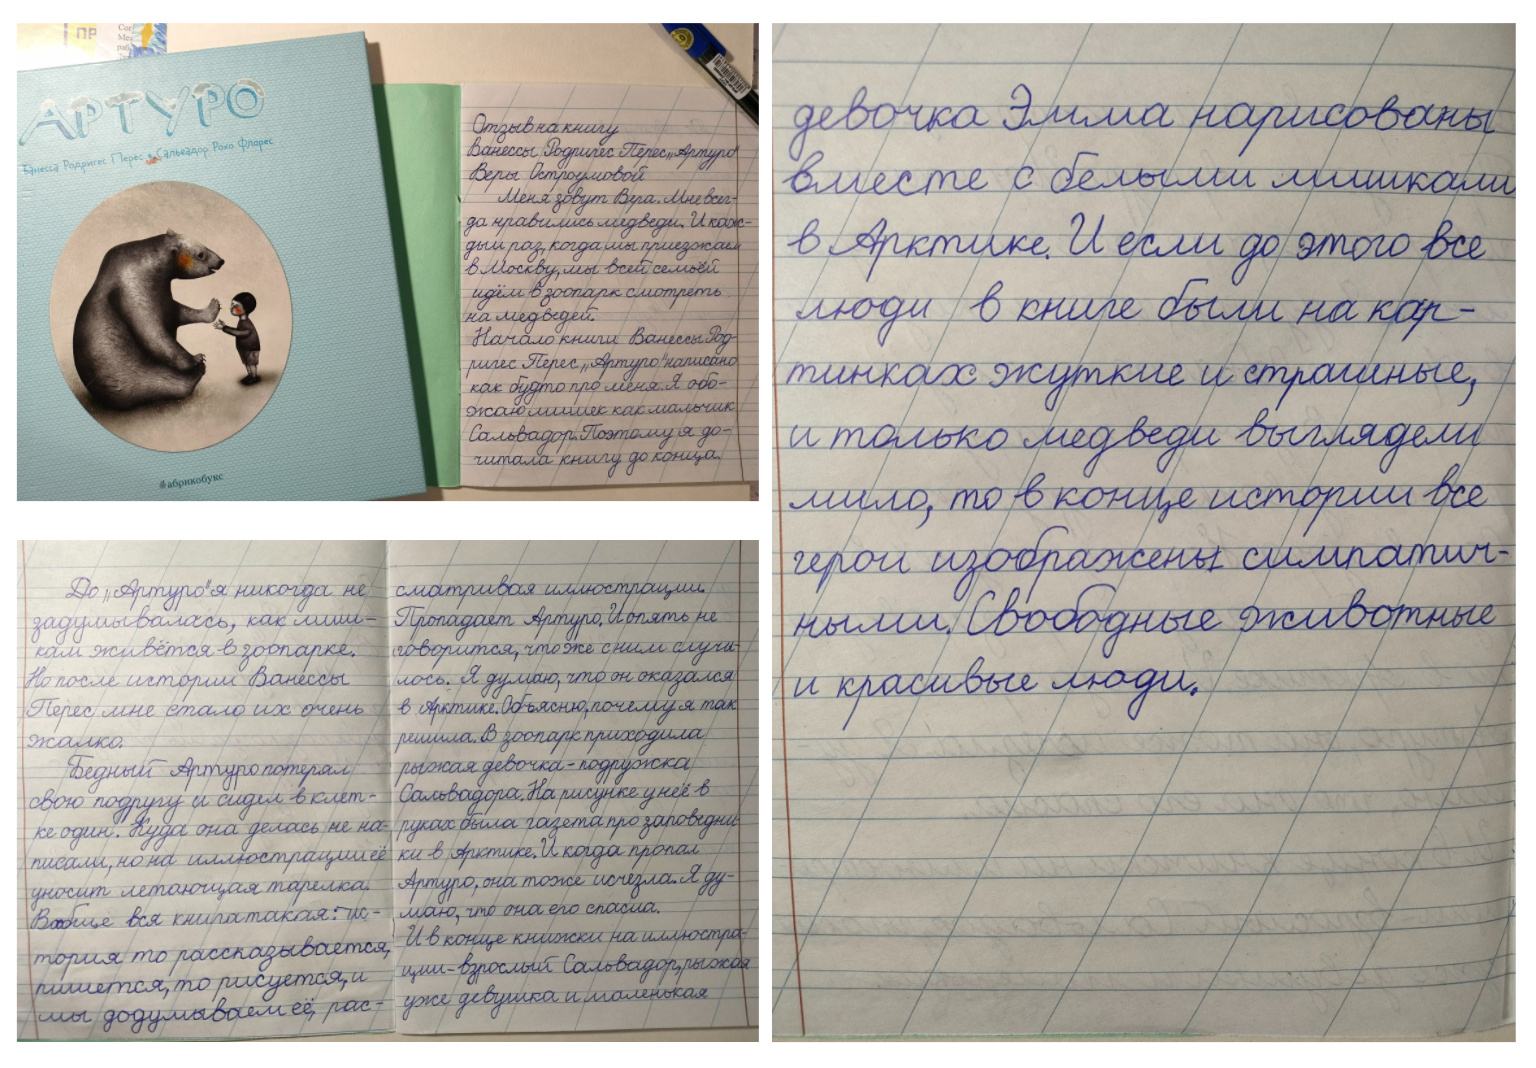 ПР
АРТУРО
Ванесса Родригес Перес Сальвадор Рохо Флорес
#абрикобукс
Отзыв на книгу
Ванессы Родригес Перес „Артуро"
Веры Остроумовой
Меня зовут Вера. Мне всег-
да нравились медведи. И каж-
дый раз, когда мы приезжаем
в Москву, мы всей семьёй
идём в зоопарк смотреть
на медведей.
Начало книги Ванессы Род-
ригес Перес „Артуро" написано
как будто про меня. Я обо-
жаю мишек как мальчик
Сальвадор. Поэтому я до-
читала книгу до конца.
До „Артуро" я никогда не
задумывалась, как миш-
кам живётся в зоопарке.
Но после истории Ванессы
Перес, мне стало их очень
жалко.
Бедный Артуро потерял
свою подругу и сидел в клет-
ке один. Куда она делась не на-
писали, но на иллюстрации её
уносит летающая тарелка.
Вообще вся книга такая: ис-
тория то рассказывается,
пишется, то рисуется, и
мы додумываем её, рас-
сматривая иллюстрации.
Пропадает Артуро. И опять не
говорится, что же с ним случи-
лось. Я думаю, что он оказался
в Арктике. Объясню, почему я так
решила. В зоопарк приходила
рыжая девочка - подружка
Сальвадора. На рисунке у неё в
руках была газета про заповедни-
ки в Арктике. И когда пропал
Артуро, она тоже исчезла. Я ду-
маю, что она его спасла.
И в конце книжки на иллюстра-
ции - взрослый Сальвадор, рыжая
уже девушка и маленькая
девочка Эмма нарисованы
вместе с белыми мишками
в Арктике. И если до этого все
люди в книге были на кар-
тинках жуткие и страшные,
и только медведи выглядели
мило, то в конце истории все
герои изображены симпатич-
ными. Свободные животные
и красивые люди.